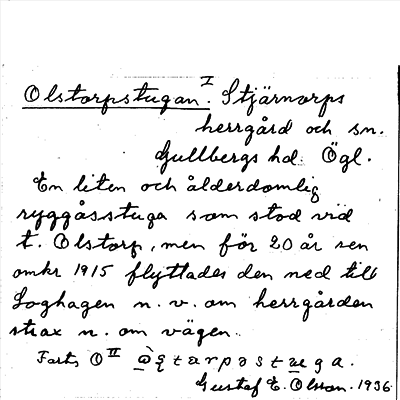 Olstorpstugan. I Stjärnorps
herrgård och sn.
Gullbergs hd. Ögl.
En liten och ålderdomlig
ryggåsstuga som stod vid
t. Olstorp, men för 20 år sen
omkr 1915 flyttades den ned till
Loghagen n. v. om herrgården
strax n. om vägen.
Forts. O II
Gustaf E. Olsson. 1936